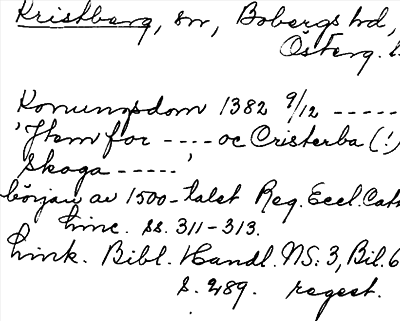 Kristberg, sn, Bobergs hd,
Österg. l.
Konungsdom 1382 9/12 -----
'Item för ---- oc Cristerba (!)
skoga -----'
början av 1500-talet Reg. Eccl. Cath
Linc. ss. 311-313.
Link. Bibl. Handl. NS: 3, Bil. 6
s. 289. regest.